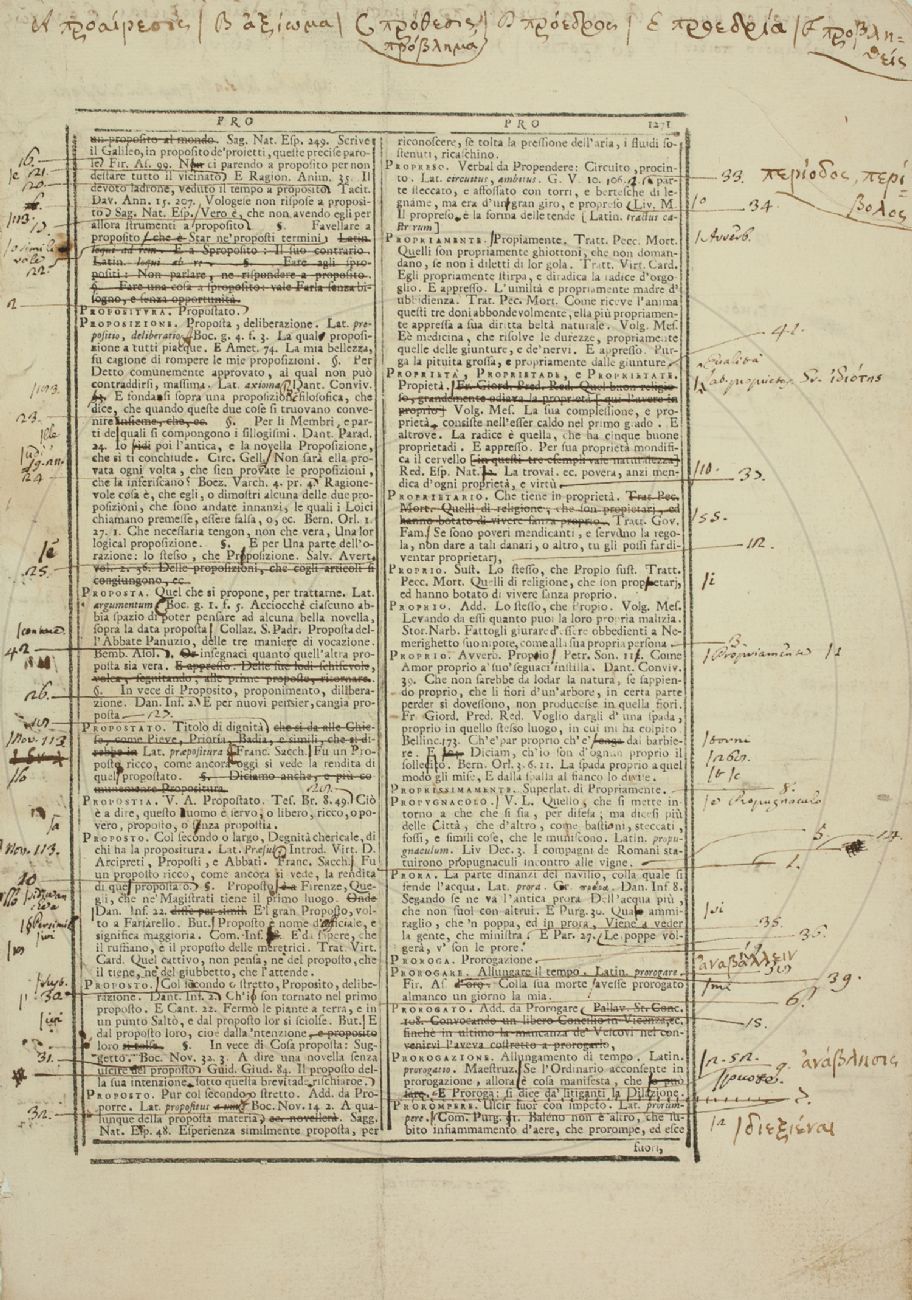 Α προαίρεσις / Β ἀξίωμα / C πρόθεσις / D πρόεδρος / Ε προεδρία / F προβλη-
πρόβλημα
θείς
PRO
un proposito al mondo. Sag. Nat. Esp. 249. Scrive
il Galileo, in proposito de' proietti, queste precise paro-
le? Fir. As. 99. Non ti parendo a proposito per non
destare tutto il vicinato) E Ragion. Anim. 35. Il
devoto ladrone, veduto il tempo a proposito Tacit.
Dav. Ann. 15. 207. Vologese non rispose a proposi-
to) Sag. Nat. Esp. Vero è, che non avendo egli per
allora strumenti a proposito §. Favellare a
proposito, che è Star ne' proposti termini Latin.
loqui ad rem. E a Sproposito: Il suo contrario.
Latin. loqui ab re. §. Fare agli spro-
positi: Non parlare, ne rispondere a proposito.
§. Fare una cosa a sproposito: vale Farla senza bi-
sogno, e senza opportunità.
PROPOSITURA. Propostato.
PROPOSIZIONE. Proposta, deliberazione. Lat. pro-
positio, deliberatio. Boc. g. 4. f. 3. La qual proposi-
zione a tutti piacque. E Amet. 74. La mia bellezza,
fu cagione di rompere le mie proposizioni. §. Per
Detto comunemente approvato, al qual non può
contraddirsi, massima. Lat. axioma. Dant. Conviv.
E fondansi sopra una proposizion filosofica, che
dice, che quando queste due cose si truovano conve-
nire insieme, che, ec. §. Per li Membri, e par-
ti de' quali si compongono i sillogismi. Dant. Parad.
24. Io poi l'antica, e la novella Proposizione,
che sì ti conchiude. Circ. Gell. Non sarà ella pro-
vata ogni volta, che sien provate le proposizioni,
che la inferiscano? Boez. Varch. 4. pr. 4. Ragione-
vole cosa è, che egli, o dimostri alcuna delle due pro-
posizioni, che sono andate innanzi, le quali i Loici
chiamano premesse, essere falsa, o, ec. Bern. Orl. 1.
27. 1. Che necessaria tengon, non che vera, Una lor
logical proposizione. §. E per Una parte dell'o-
razione: lo stesso, che Proposizione. Salv. Avert.
vol. 2. 56. Delle proposizioni, che cogli articoli si
congiungono, ec.
PROPOSTA. Quel che si propone, per trattarne. Lat.
argumentum. Boc. g. 1. f. 5. Acciocchè ciascuno ab-
bia spazio di poter pensare ad alcuna bella novella,
sopra la data proposta. Collaz. S. Padr. Proposta del-
l'Abbate Panuzio, delle tre maniere di vocazione.
Bemb. Asol. insegnaci quanto quell'altra pro-
posta sia vera. E appresso. Delle sue lodi schifevole,
volea, seguitando, alle prime proposte, ritornare.
§. In vece di Proposito, proponimento, dilibera-
zione. Dan. Inf. 2. E per nuovi pensier, cangia pro-
posta
PROPOSTATO. Titolo di dignità, che si da alle Chie-
se, come Pieve, Prioria, Badia, e simili, che si di-
rebbe in Lat. propositura. Franc. Sacch. Fu un Pro-
posto ricco, come ancora oggi si vede la rendita di
quel propostato. §. Diciamo anche, e più co-
munemente Propositura.
PROPOSTIA. V. A. Propostato. Tes. Br. 8. 49. Ciò
è a dire, questo uomo è servo, o libero, ricco, o po-
vero, proposto, o senza propostia.
PROPOSTO. Col secondo o largo, Degnità chericale, di
chi ha la propositura. Lat. Praesul. Introd. Virt. D.
Arcipreti, Proposti, e Abbati. Franc. Sacch. Fu
un proposto ricco, come ancora si vede, la rendita
di quel propostato. §. Proposto è a Firenze, Que-
gli, che ne' Magistrati tiene il primo luogo. Onde
Dan. Inf. 22. disse per simil. E'l gran Proposto, vol-
to a Farfarello. But. Proposto è nome d'officiale, e
significa maggioria. Com. Inf. E da sapere, che
il ruffiano, e il proposto delle meretrici. Trat. Virt.
Card. Quel cattivo, non pensa, ne del proposto, che
il tiene, ne del giubbetto, che l'attende.
PROPOSTO. Col secondo o stretto, Proposito, delibe-
razione. Dant. Inf. 2. Ch'i son tornato nel primo
proposto. E Cant. 22. Fermò le piante a terra, e in
un punto Saltò, e dal proposto lor si sciolse. But. E
dal proposto loro, cioè dalla 'ntenzione, e proposito
loro si tolse. §. In vece di Cosa proposta: Sug-
getto. Boc. Nov. 32. 3. A dire una novella senza
uscire del proposto. Guid. Giud. 84. Il proposto del-
la sua intenzione, sotto questa brevitade rischiaroe.
PROPOSTO. Pur col secondo o stretto. Add. da Pro-
porre. Lat. propositus Boc. Nov. 14. 2. A qua-
lunque della proposta materia, ec. novellerà. Sagg.
Nat. Esp. 48. Esperienza similmente proposta, per
PRO 1271
riconoscere, se tolta la pressione dell'aria, i fluidi so-
stenuti, ricaschino.
PROPRESO. Verbal da Propendere: Circuito, procin-
to. Lat. circuitus, ambitus. G. V. 10. 106. 2. La par-
te steccato, e affossato con torri, e bertesche di le-
gname, ma era d'un gran giro, e propreso. Liv. M.
Il propreso è la forma delle tende [ Latin. tradus ca-
strorum]
PROPRIAMENTE. Propiamente. Tratt. Pecc. Mort.
Quelli son propriamente ghiottoni, che non doman-
dano, se non i diletti di lor gola. Tratt. Virt. Card.
Egli propriamente stirpa, e diradica la radice d'orgo-
glio. E appresso. L'umiltà e propriamente madre d'
ubbidienza. Trat. Pec. Mort. Come riceve l'anima
questi tre doni abbondevolmente, ella più propriamen-
te appressa a sua diritta beltà naturale. Volg. Mes.
Eè medicina, che risolve le durezze, propriamente
quelle delle giunture, e de' nervi. E appresso. Pur-
ga la pituita grossa, e propriamente dalle giunture
PROPRIETÀ, PROPRIETADE, E PROPRIETATE.
Propietà. Fr. Giord. Pred. Red. Quel buon religio-
so, grandemente odiava la proprietà [qui l'avere in
proprio] Volg. Mes. La sua complessione, e pro-
prietà, consiste nell'esser caldo nel primo grado. E
altrove. La radice è quella, che ha cinque buone
proprietadi. E appresso. Per sua proprietà mondifi-
ca il cervello [in questi tre esempli vale natura stezza]
Red. Esp. Nat. La troval. ec. povera, anzi men-
dica d'ogni proprietà, e virtù
PROPRIETARIO. Che tiene in proprietà. Trat. Pec.
Mort. Quelli di religione, che son propietarj, ed
hanno botato di vivere sanza proprio. Tratt. Gov.
Fam. Se sono poveri mendicanti, e servano la rego-
la, non dare a tali danari, o altro, tu gli possi far di-
ventar proprietarj.
PROPRIO. Sust. Lo stesso, che Propio sust. Tratt.
Pecc. Mort. Quelli di religione, che son propietarj,
ed hanno botato di vivere sanza proprio.
PROPRIO. Add. Lo stesso, che Propio. Volg. Mes.
Levando da essi quanto puoi la loro propria malizia.
Stor. Narb. Fattogli giurare d'essere obbedienti a Ne-
merighetto suo nipote, come alla sua propria persona
PROPRIO. Avverb. Propio. Petr. Son. 115. Come
Amor proprio a' suo' seguaci instilla. Dant. Conviv.
39. Che non sarebbe da lodar la natura, se sappien-
do proprio, che li fiori d'un'arbore, in certa parte
perder si dovessono, non producesse in quella fiori.
Fr. Giord. Pred. Red. Voglio dargli d'una spada,
proprio in quello stesso luogo, in cui mi ha colpito.
Bellinc. 173. Ch'e' par proprio ch'e' dai barbie-
re. E Diciam, ch'io son il proprio il
sollecito. Bern. Orl. 3. 6. 11. La spada proprio a quel
modo gli mise, E dalla spalla al fianco lo divise.
PROPRISSIMAMENTE. Superlat. di Propriamente.
PROPUGNACOLO. V. L. Quello, che si mette in-
torno a che che si sia, per difesa; ma dicesi più
delle Città, che d'altro, come bastioni, steccati,
fossi, e simili cose, che le muniscono. Latin. propu-
gnaculum. Liv Dec. 3. I compagni de Romani sta-
tuirono propugnaculi incontro alle vigne.
PRORA. La parte dinanzi del navilio, colla quale si
fende l'acqua. Lat. prora. Gr. Dan. Inf 8.
Segando se ne va l'antica prora Dell'acqua più,
che non suol con altrui. E Purg. 30. Quale ammi-
raglio, che 'n poppa, ed in prora, Viene a veder
la gente, che ministra. E Par. 27. Le poppe vol-
gerà, u' son le prore.
PROROGA. Prorogazione.
PROROGARE. Allungare il tempo. Latin. prorogare.
Fir. As Colla sua morte avesse prorogato
almanco un giorno la mia.
PROROGATO. Add. da Prorogare. Pallav. St. Conc.
108. Convocando un libero Concilio in Vicenza, ec.
finchè in ultimo la mancanza de' Vescovi nel con-
venirvi l'aveva costretto a prorogarlo.
PROROGAZIONE. Allungamento di tempo. Latin.
prorogatio. Maestruz. Se l'Ordinario acconsente in
prorogazione, allora è cosa manifesta, che
E Proroga: si dice da' litiganti la Dilazione.
PROROMPERE. Uscir fuor con impeto. Lat. prorum-
pere. Com. Purg. 21. Baseno non è altro, che su-
bito infiammamento d'aere, che prorompe, ed esce
fuori,
16.
21.
20.
22.
2
23.
24
25.
42
26.
Nov. 113
16
Nov. 113.
30
31.
32.
127.
33. περίοδος, περί-
βολος
34.
Avverb.
42.
ἰδιότης
33.
55.
112.
Propriamente
Propugnaculo
5
14.
35.
36.
ἀναβάλλειν
39.
6.
15.
9. ἀνάβλησις
διεξιέναι